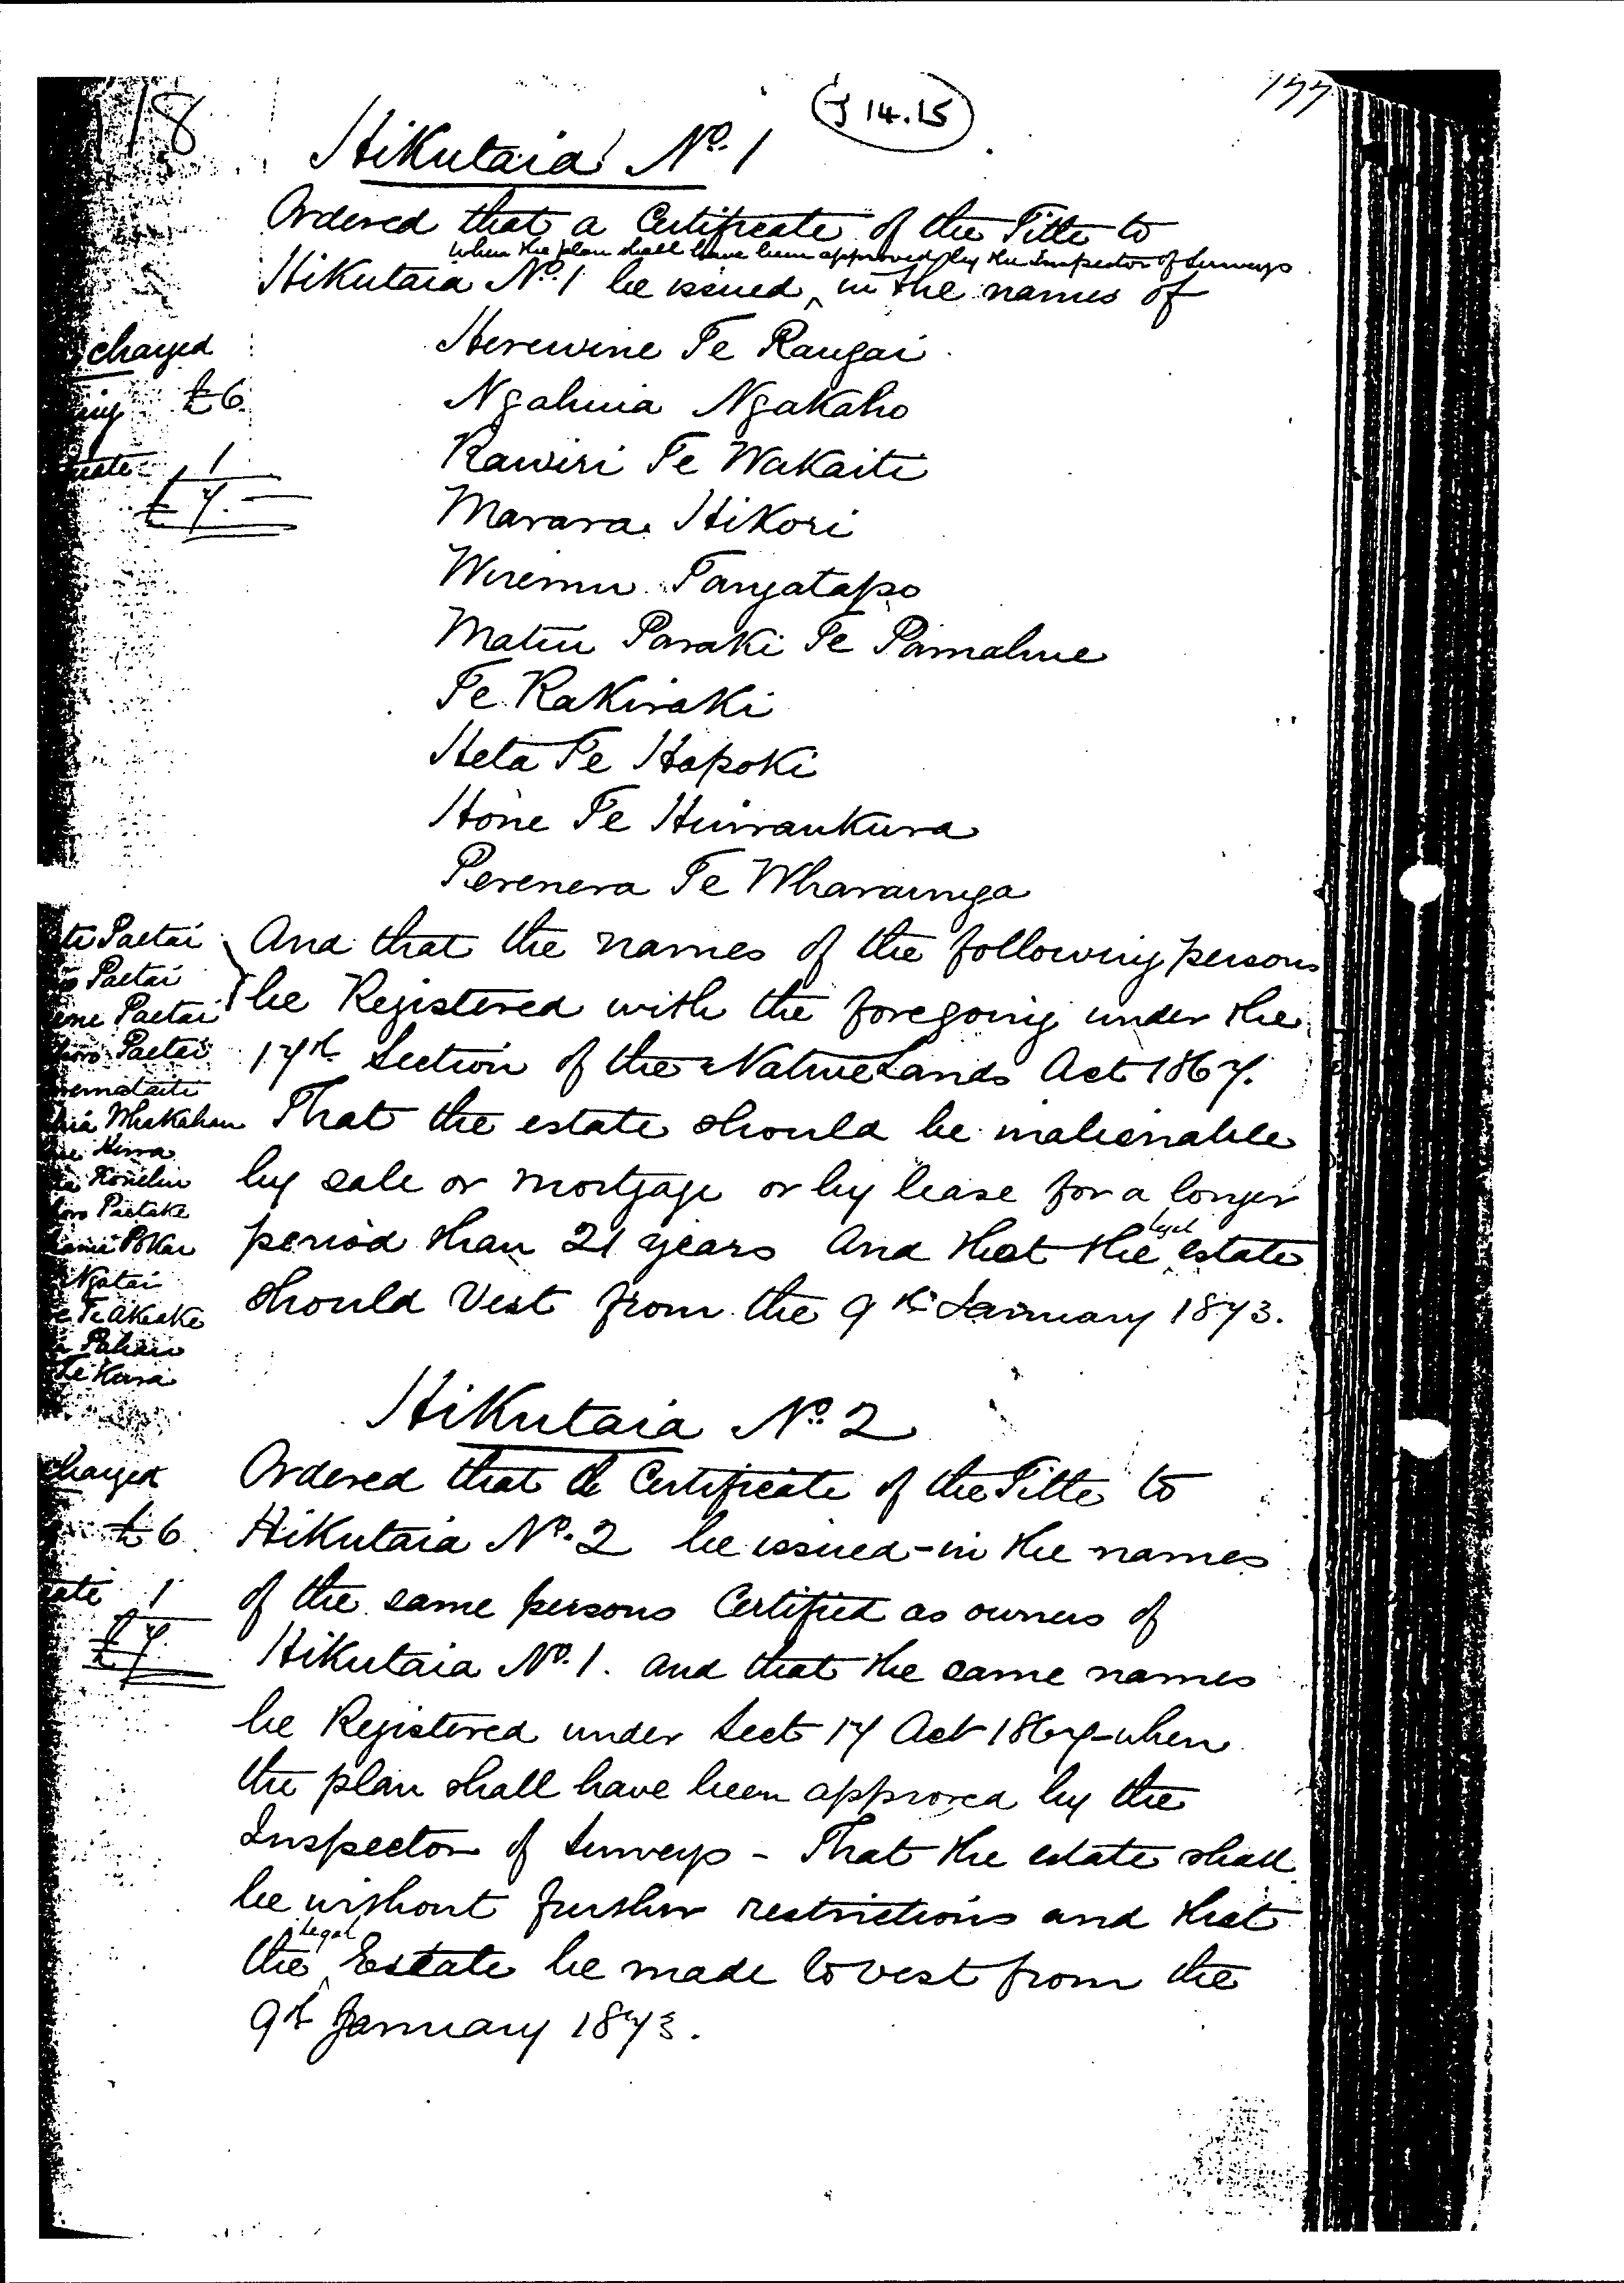 118
J 14.15
177
Hikutaia No. 1
Ordered that a Certificate of the Title to
when the plan shall have been approved by the Inspector of Surveys
Hikutaia No. 1 be issued ^ in the names of
Herewine Te Rangai
Ngahuia Ngakaho
Rawiri Te Wakaiti
Marara Hikori
Wiremu Tangatapo
Matiu Paraki Te Pamahue
Te Rakiraki
Heta Te Hapoki
Hone Te Huiraukura
Perenera Te Wharaunga
charged
£6
1
£7.–
And that the names of the following persons
be Registered with the foregoing under the
17th Section of the Native Lands Act 1867.
That the estate should be inalienable
by sale or mortgage or by lease for a longer
legal
period than 21 years And that the ^ estate
should Vest from the 9th January 1873.
Paetai
Paetai
Paetai
Paetai
Whakahau
Paetake
Pokai
Ngatai
Te Akeake
Te Kura
Hikutaia No. 2
Ordered that a Certificate of the Title to
Hikutaia No. 2 be issued – in the names
of the same persons Certified as owners of
Hikutaia No. 1. and that the same names
be Registered under Sect 17 Act 1867 – when
the plan shall have been approved by the
Inspector of Surveys – That the estate shall
be without further restrictions and that
legal
the ^ Estate be made to vest from the
9th January 1873.
charged
£6
1
£7.